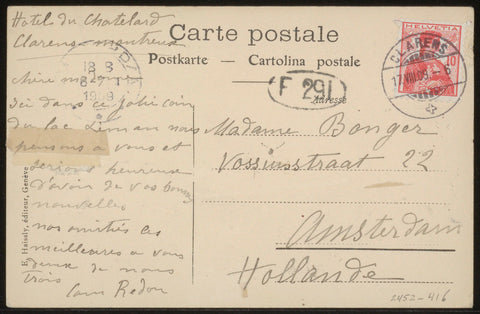 Hotel du Chatelard
Clarens-Montreux
Carte postale
Postkarte — Cartolina postale
Adresse
F 291
HELVETIA
10
CLARENS
17.VIII.09. - 6
18 8
1909
Chère madame
Ici dans ce jolie coin
du lac Léman nous
pensons a vous et
serions heureuse
d'avoir de vos bonnes
nouvelles
nos amitiés les
meilleures a vous
deux de nous
trois
Cam Redon
Madame Bonger
Vossiusstraat 22
Amsterdam
Hollande
E. Haissly, éditeur, Genève
2452-416